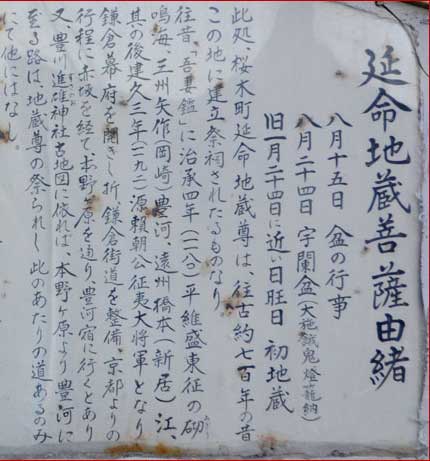 延命地蔵菩薩由緒
八月十五日 盆の行事
八月二十四日 宇闌盆(大施餓鬼 燈籠納)
旧一月二十四日に近い日旺日 初地蔵
此処、桜木町延命地蔵尊は、往古約七百年の昔
この地に建立祭祠されたるものなり
往昔、「吾妻鑑」に治承四年(一一八〇)平維盛東征の砌
鳴海、三州矢作(岡崎)豊河、遠州橋本(新居)江、
其の後建久三年(一一九二)源頼朝公征夷大将軍となり
鎌倉幕府を開きし折、鎌倉街道を整備、京都よりの
行程に赤坂を経て本野ヶ原を通り、豊河宿に行くとあり
又、豊川進雄神社古地図に依れば、本野ヶ原より豊河に
至る路は地蔵尊の祭られし此のあたりの道あるのみ
にて他にはなし